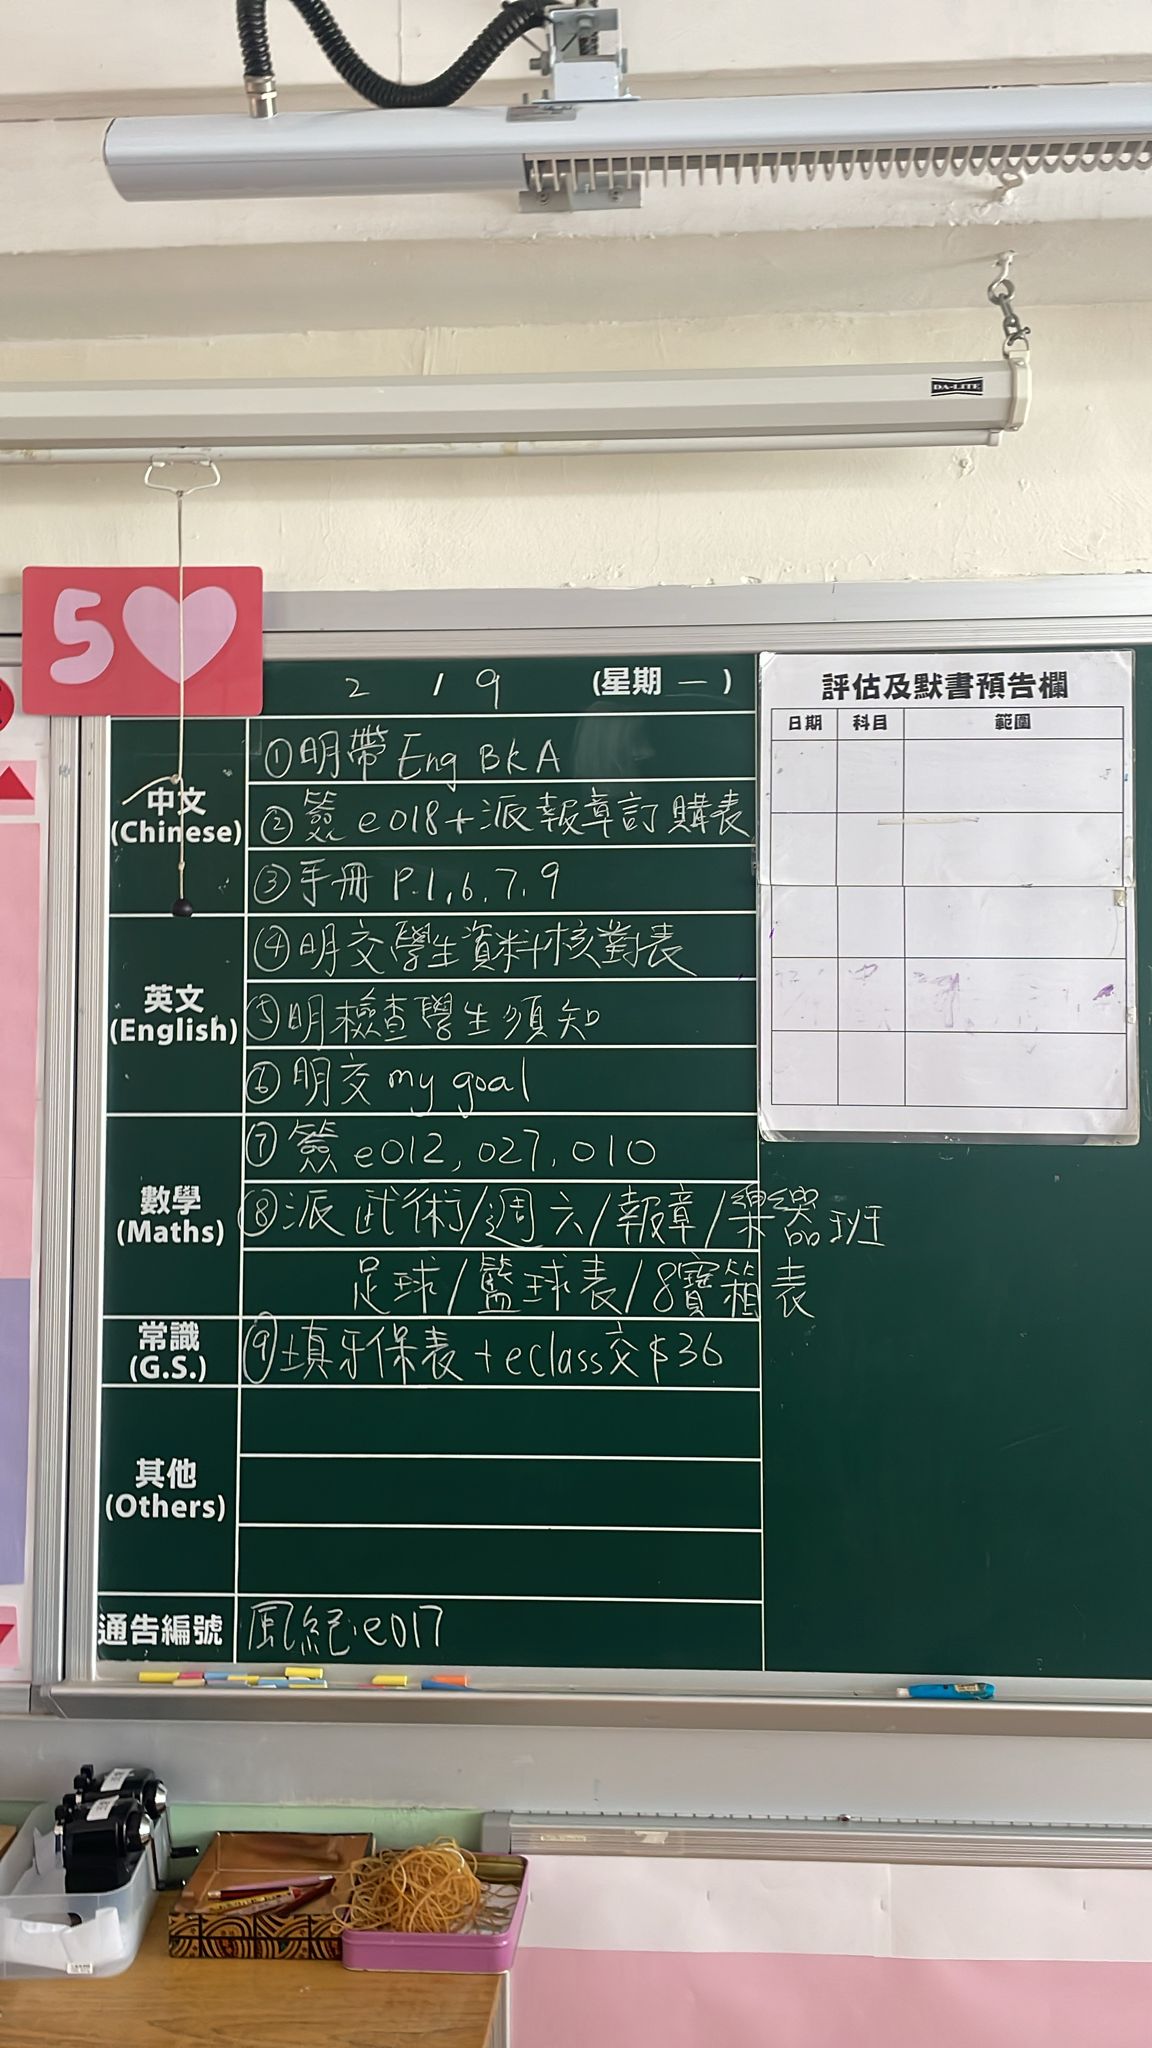 DA-LITE
5
2 / 9 (星期一)
評估及默書預告欄
日期 科目 範圍
中文
(Chinese)
①明帶 Eng BK A
②簽 e018+派報章訂購表
③手冊 P.1,6,7,9
英文
(English)
④明交學生資料核對表
⑤明檢查學生須知
⑥明交 my goal
數學
(Maths)
⑦簽 e012, 027, 010
⑧派 武術/週六/報章/樂器班
足球/籃球表/8寶箱表
常識
(G.S.)
⑨填牙保表 + eclass交 $36
其他
(Others)
通告編號
風紀:e017